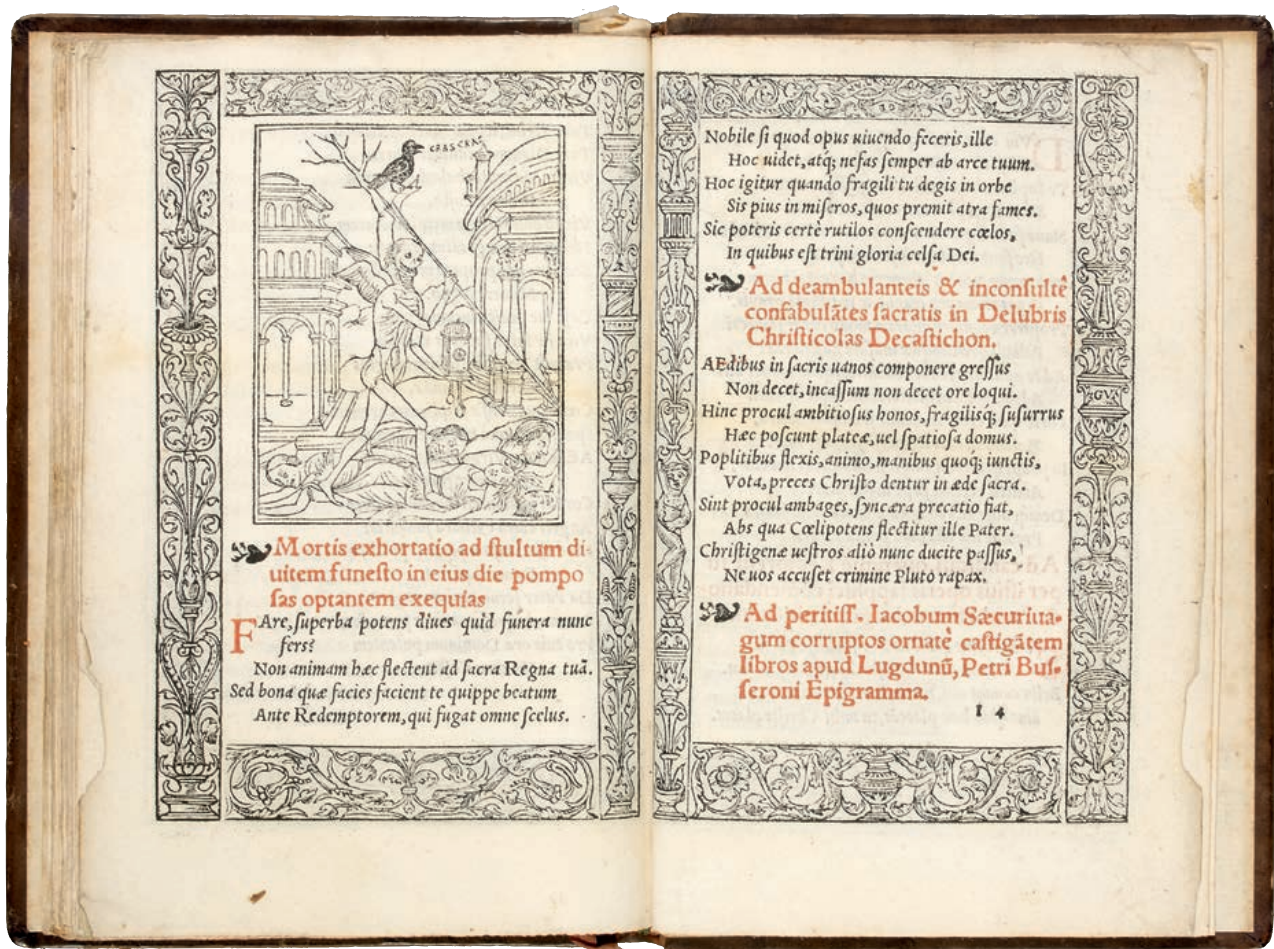 CRAS CRAS
Mortis exhortatio ad ſtultum di-
uitem funeſto in eius die pompo
ſas optantem exequias
FAre, ſuperba potens diues quid funera nunc
fers?
Non animam hæc flectent ad ſacra Regna tuā.
Sed bona quæ facies facient te quippe beatum
Ante Redemptorem, qui fugat omne ſcelus.
Nobile ſi quod opus uiuendo feceris, ille
Hoc uidet, atq; nefas ſemper ab arce tuum.
Hoc igitur quando fragili tu degis in orbe
Sis pius in miſeros, quos premit atra fames.
Sic poteris certè rutilos conſcendere cœlos,
In quibus eſt trini gloria celſa Dei.
Ad deambulanteis & inconſultê
confabulātes ſacratis in Delubris
Chriſticolas Decaſtichon.
AEdibus in ſacris uanos componere greſſus
Non decet, incaſſum non decet ore loqui.
Hinc procul ambitioſus honos, fragilisq; ſuſurrus
Hæc poſcunt plateæ, uel ſpatioſa domus.
Poplitibus flexis, animo, manibus quoq; iunctis,
Vota, preces Chriſto dentur in æde ſacra.
Sint procul ambages, ſyncæra precatio fiat,
Abs qua Cœlipotens flectitur ille Pater.
Chriſtigenæ ueſtros aliò nunc ducite paſſus,
Ne uos accuſet crimine Pluto rapax.
Ad peritiſſ. Iacobum Sæcuriua-
gum corruptos ornatè caſtigātem
libros apud Lugdunū, Petri Buſ-
ſeroni Epigramma.
I 4